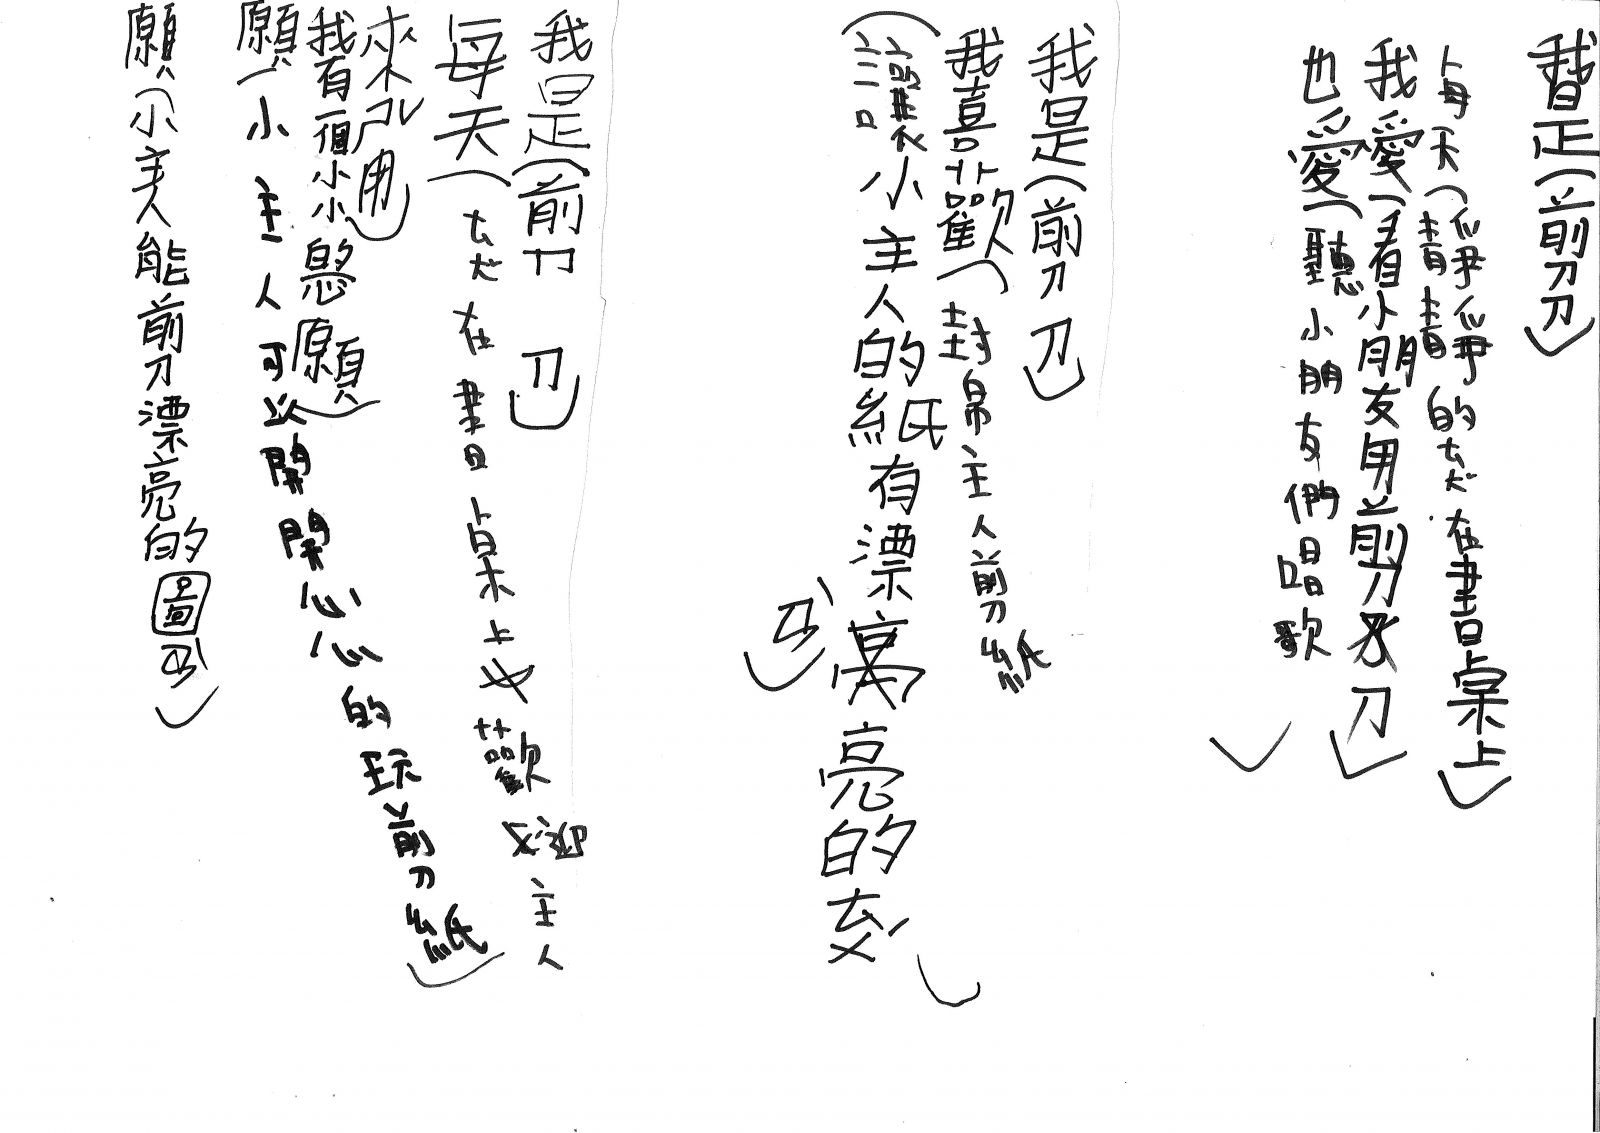 我是(剪刀)
每天(靜靜的ㄊㄤˇ在書桌上)
我愛(看小朋友用剪刀)
也愛(聽小朋友們唱歌)
我是(剪刀)
我喜歡(封帛主人剪紙)
(讓小主人的紙有漂亮的ㄊㄨˊ
ㄢˋ)
我是(剪刀)
每天(ㄊㄤˇ在書桌上也歡迎主人
來使用)
我有一個小小的心願
願(小主人可以開開心心的玩剪刀紙)
願(小主人能剪刀漂亮的圖ㄢˋ)